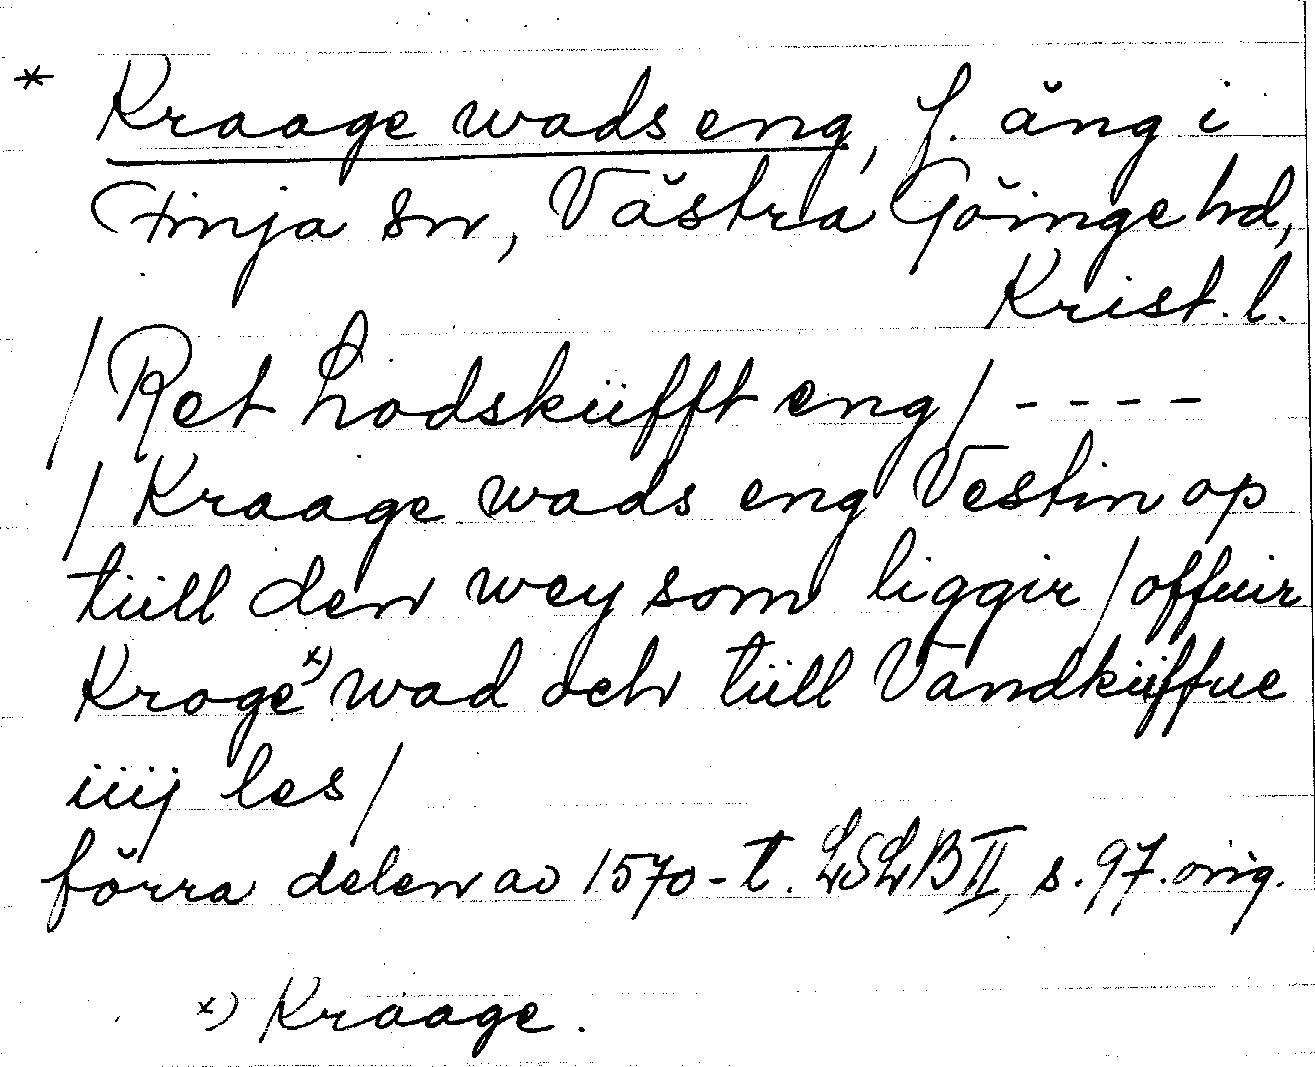 * Kraage wads eng, f. äng i
Finja sn, Västra Göinge hd,
Krist. l.
/ Ret hodsküfft eng / - - - -
/ Kraage wads eng Vestin op
tiill den wey som liggir / offuir
Kroge x) wad och tiill Vandküffue
iiij les /
förra delen av 1570-t. LSLB II, s. 97. orig.
x) Kraage.